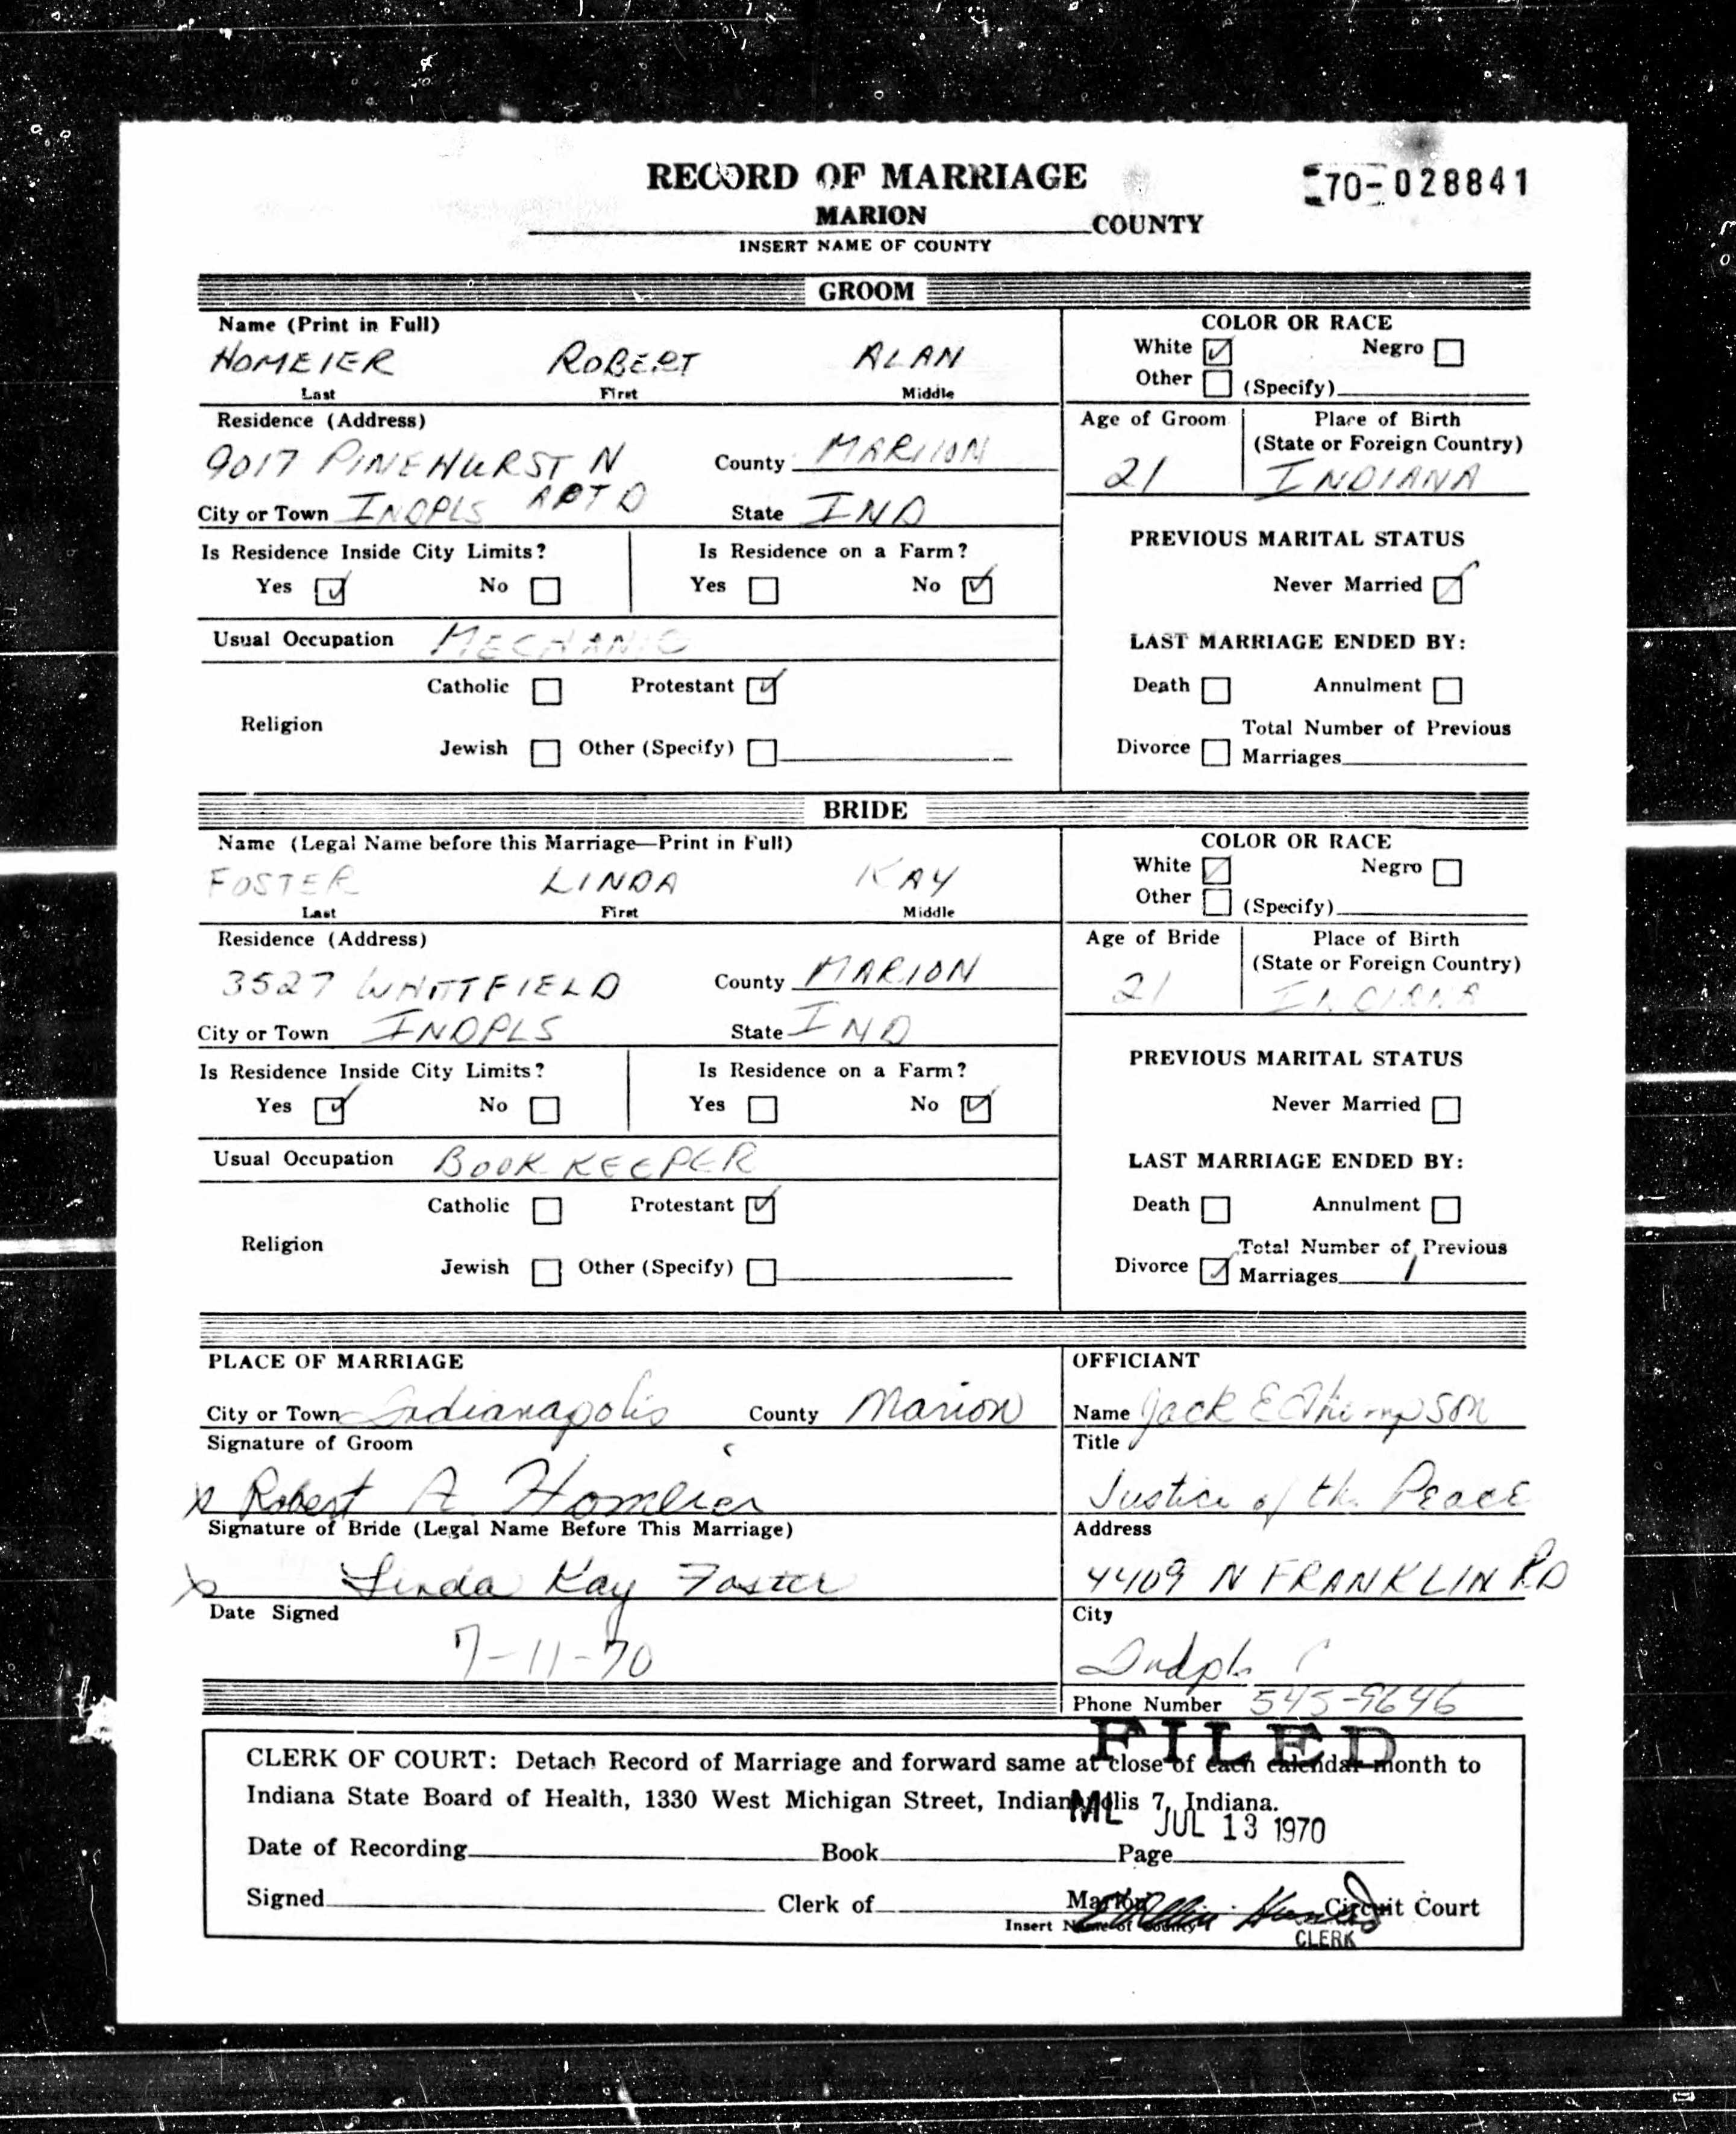 RECORD OF MARRIAGE
70-028841
MARION COUNTY
INSERT NAME OF COUNTY
GROOM
Name (Print in Full)
HOMEIER ROBERT ALAN
Last First Middle
COLOR OR RACE
White Negro
Other (Specify)
Residence (Address)
9017 PINEHURST N County MARIION
APT D
City or Town INDPLS State IND
Age of Groom Place of Birth
(State or Foreign Country)
21 INDIANA
Is Residence Inside City Limits? Is Residence on a Farm?
Yes No Yes No
PREVIOUS MARITAL STATUS
Never Married
Usual Occupation MECHANIC
LAST MARRIAGE ENDED BY:
Catholic Protestant
Religion
Jewish Other (Specify)
Death Annulment
Total Number of Previous
Divorce Marriages
BRIDE
Name (Legal Name before this Marriage—Print in Full)
FOSTER LINDA KAY
Last First Middle
COLOR OR RACE
White Negro
Other (Specify)
Residence (Address)
3527 WHITFIELD County MARION
City or Town INDPLS State IND
Age of Bride Place of Birth
(State or Foreign Country)
21 INDIANA
Is Residence Inside City Limits? Is Residence on a Farm?
Yes No Yes No
PREVIOUS MARITAL STATUS
Never Married
Usual Occupation BOOK KEEPER
LAST MARRIAGE ENDED BY:
Catholic Protestant
Religion
Jewish Other (Specify)
Death Annulment
Total Number of Previous
Divorce Marriages 1
PLACE OF MARRIAGE
City or Town Indianapolis County Marion
Signature of Groom
x Robert A Homeier
Signature of Bride (Legal Name Before This Marriage)
x Linda Kay Foster
Date Signed
7-11-70
OFFICIANT
Name Jack E Thompson
Title
Justice of the Peace
Address
4409 N FRANKLIN RD
City
Indpls
Phone Number 545-9646
FILED
CLERK OF COURT: Detach Record of Marriage and forward same at close of each calendar month to
Indiana State Board of Health, 1330 West Michigan Street, Indianapolis 7, Indiana.
ML JUL 13 1970
Date of Recording Book Page
Signed Clerk of Marion Circuit Court
Insert Name of County
CLERK